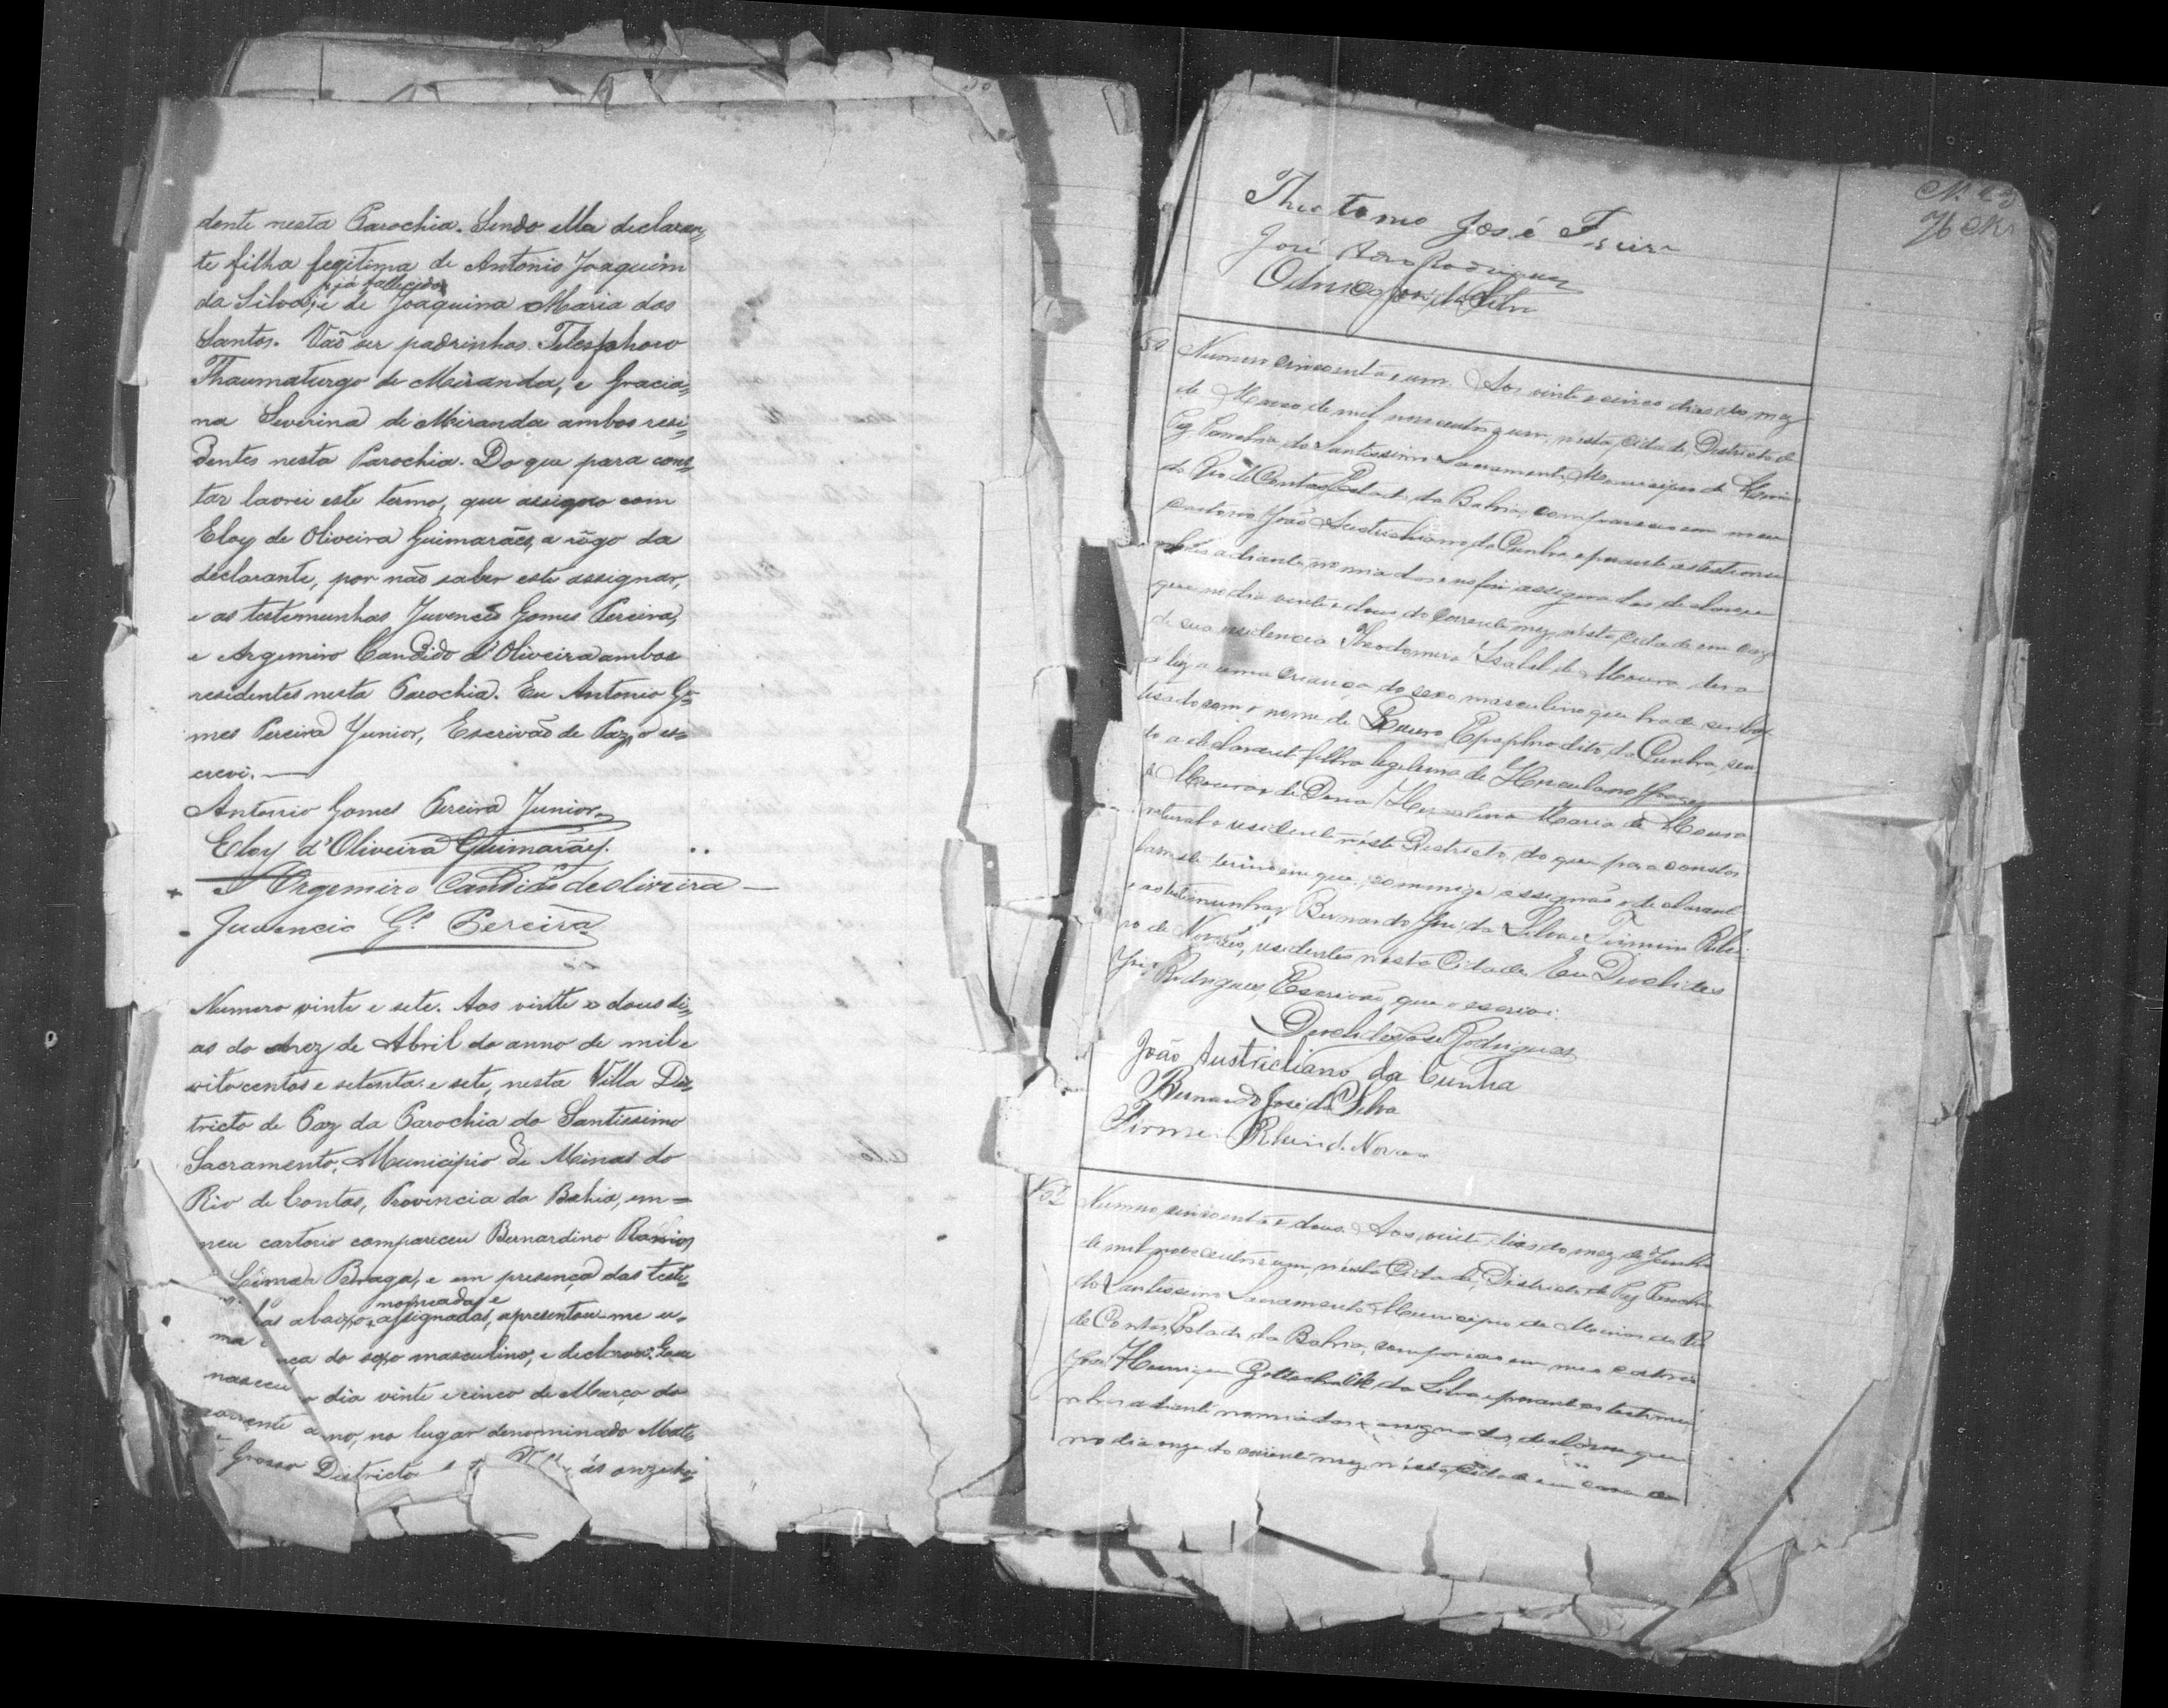 dente nesta Parochia. Sendo ella declaran-
te filha legitima de Antonio Joaquim
já fallecido
da Silva, e de Joaquina Maria dos
Santos. Vão ser padrinhos Telesphoro
Thaumaturgo de Miranda, e Gracia-
na Severina de Miranda ambos resi-
dentes nesta Parochia. Do que para cons-
tar lavrei este termo, que assigno com
Eloy de Oliveira Guimarães, a rôgo da
declarante, por não saber esta assignar,
e as testemunhas Juvencio Gomes Pereira,
e Argemiro Candido d'Oliveira ambos
residentes nesta Parochia. Eu Antonio Go-
mes Pereira Junior, Escrivão de Paz, o es-
crevi.
Antonio Gomes Pereira Junior
Eloy d'Oliveira Guimarães.
Argemiro Candido de oliveira
Juvencio Gs. Pereira
Numero vinte e sete. Aos vinte e dous di-
as do mez de Abril do anno de mil e
oito centos e setenta e sete, nesta Villa Dis-
tricto de Paz da Parochia do Santissimo
Sacramento, Municipio de Minas do
Rio de Contas, Provincia da Bahia, em
meu cartorio compareceu Bernardino Ramos
Lima Braga, e em presença das teste-
nomeadas e
has abaixo assignadas, apresentou-me u-
ma nça do sexo masculino, e declarou: Que
nasceu o dia vinte e cinco de Março do
corrente anno, no lugar denominado Mato
Grosso Districto ás onze ho-
N. 23
José Rodrigues
José da Silva
51 Numero cincoenta e um. Aos vinte e cinco dias do mez
de Março de mil novecentos e um, nesta Cidade, Districto de
Paz Parochia do Santissimo Sacramento, Municipio de Minas
do Rio de Contas, Estado da Bahia, compareceu em meu
cartorio João Austricliano da Cunha, e perante as testemu-
nhas adiante nomiadas e no fim assignadas, declarou
que no dia vinte e dous do corrente mez, nesta Cidade em casa
de sua residencia Theodomira Isabel de Moura dera
a luz a uma criança do sexo masculino que ha de ser bap-
tisado com o nome de Lauro Epaphrodito da Cunha, sen-
do a declarante filha legitima de Herculano
Moura e de Dona Maria de Moura
natural e residente neste Districto, do que para constar
lavro este termo em que commigo assignão o declarante
e as testimunhas Bernardo José da Silva e Firmino Ribei-
ro de Novaes, residentes nesta Cidade. Eu Deoclides
José Rodrigues, Escrivão, que o escrevi.
Deoclides José Rodrigues
João Austricliano da Cunha
Bernardo José da Silva
Firmino Ribeiro de Novaes
52 Numero cincoenta e dous. Aos vinte dias do mez de Junho
de mil novecentos e um, nesta Cidade, Districto de Paz Parochia
do Santissimo Sacramento Municipio de Minas do Rio
de Contas, Estado da Bahia, compareceu em meu cartorio
da Silva, e perante as testemu-
nhas adiante nomiadas e assignadas, declarou que
no dia onze do corrente mez, nesta Cidade em casa de